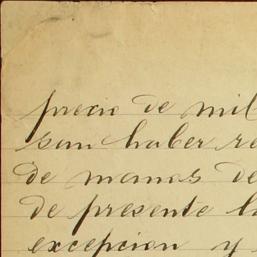 precio de mil
san haber re
de manos de
de presente l
excepcion y